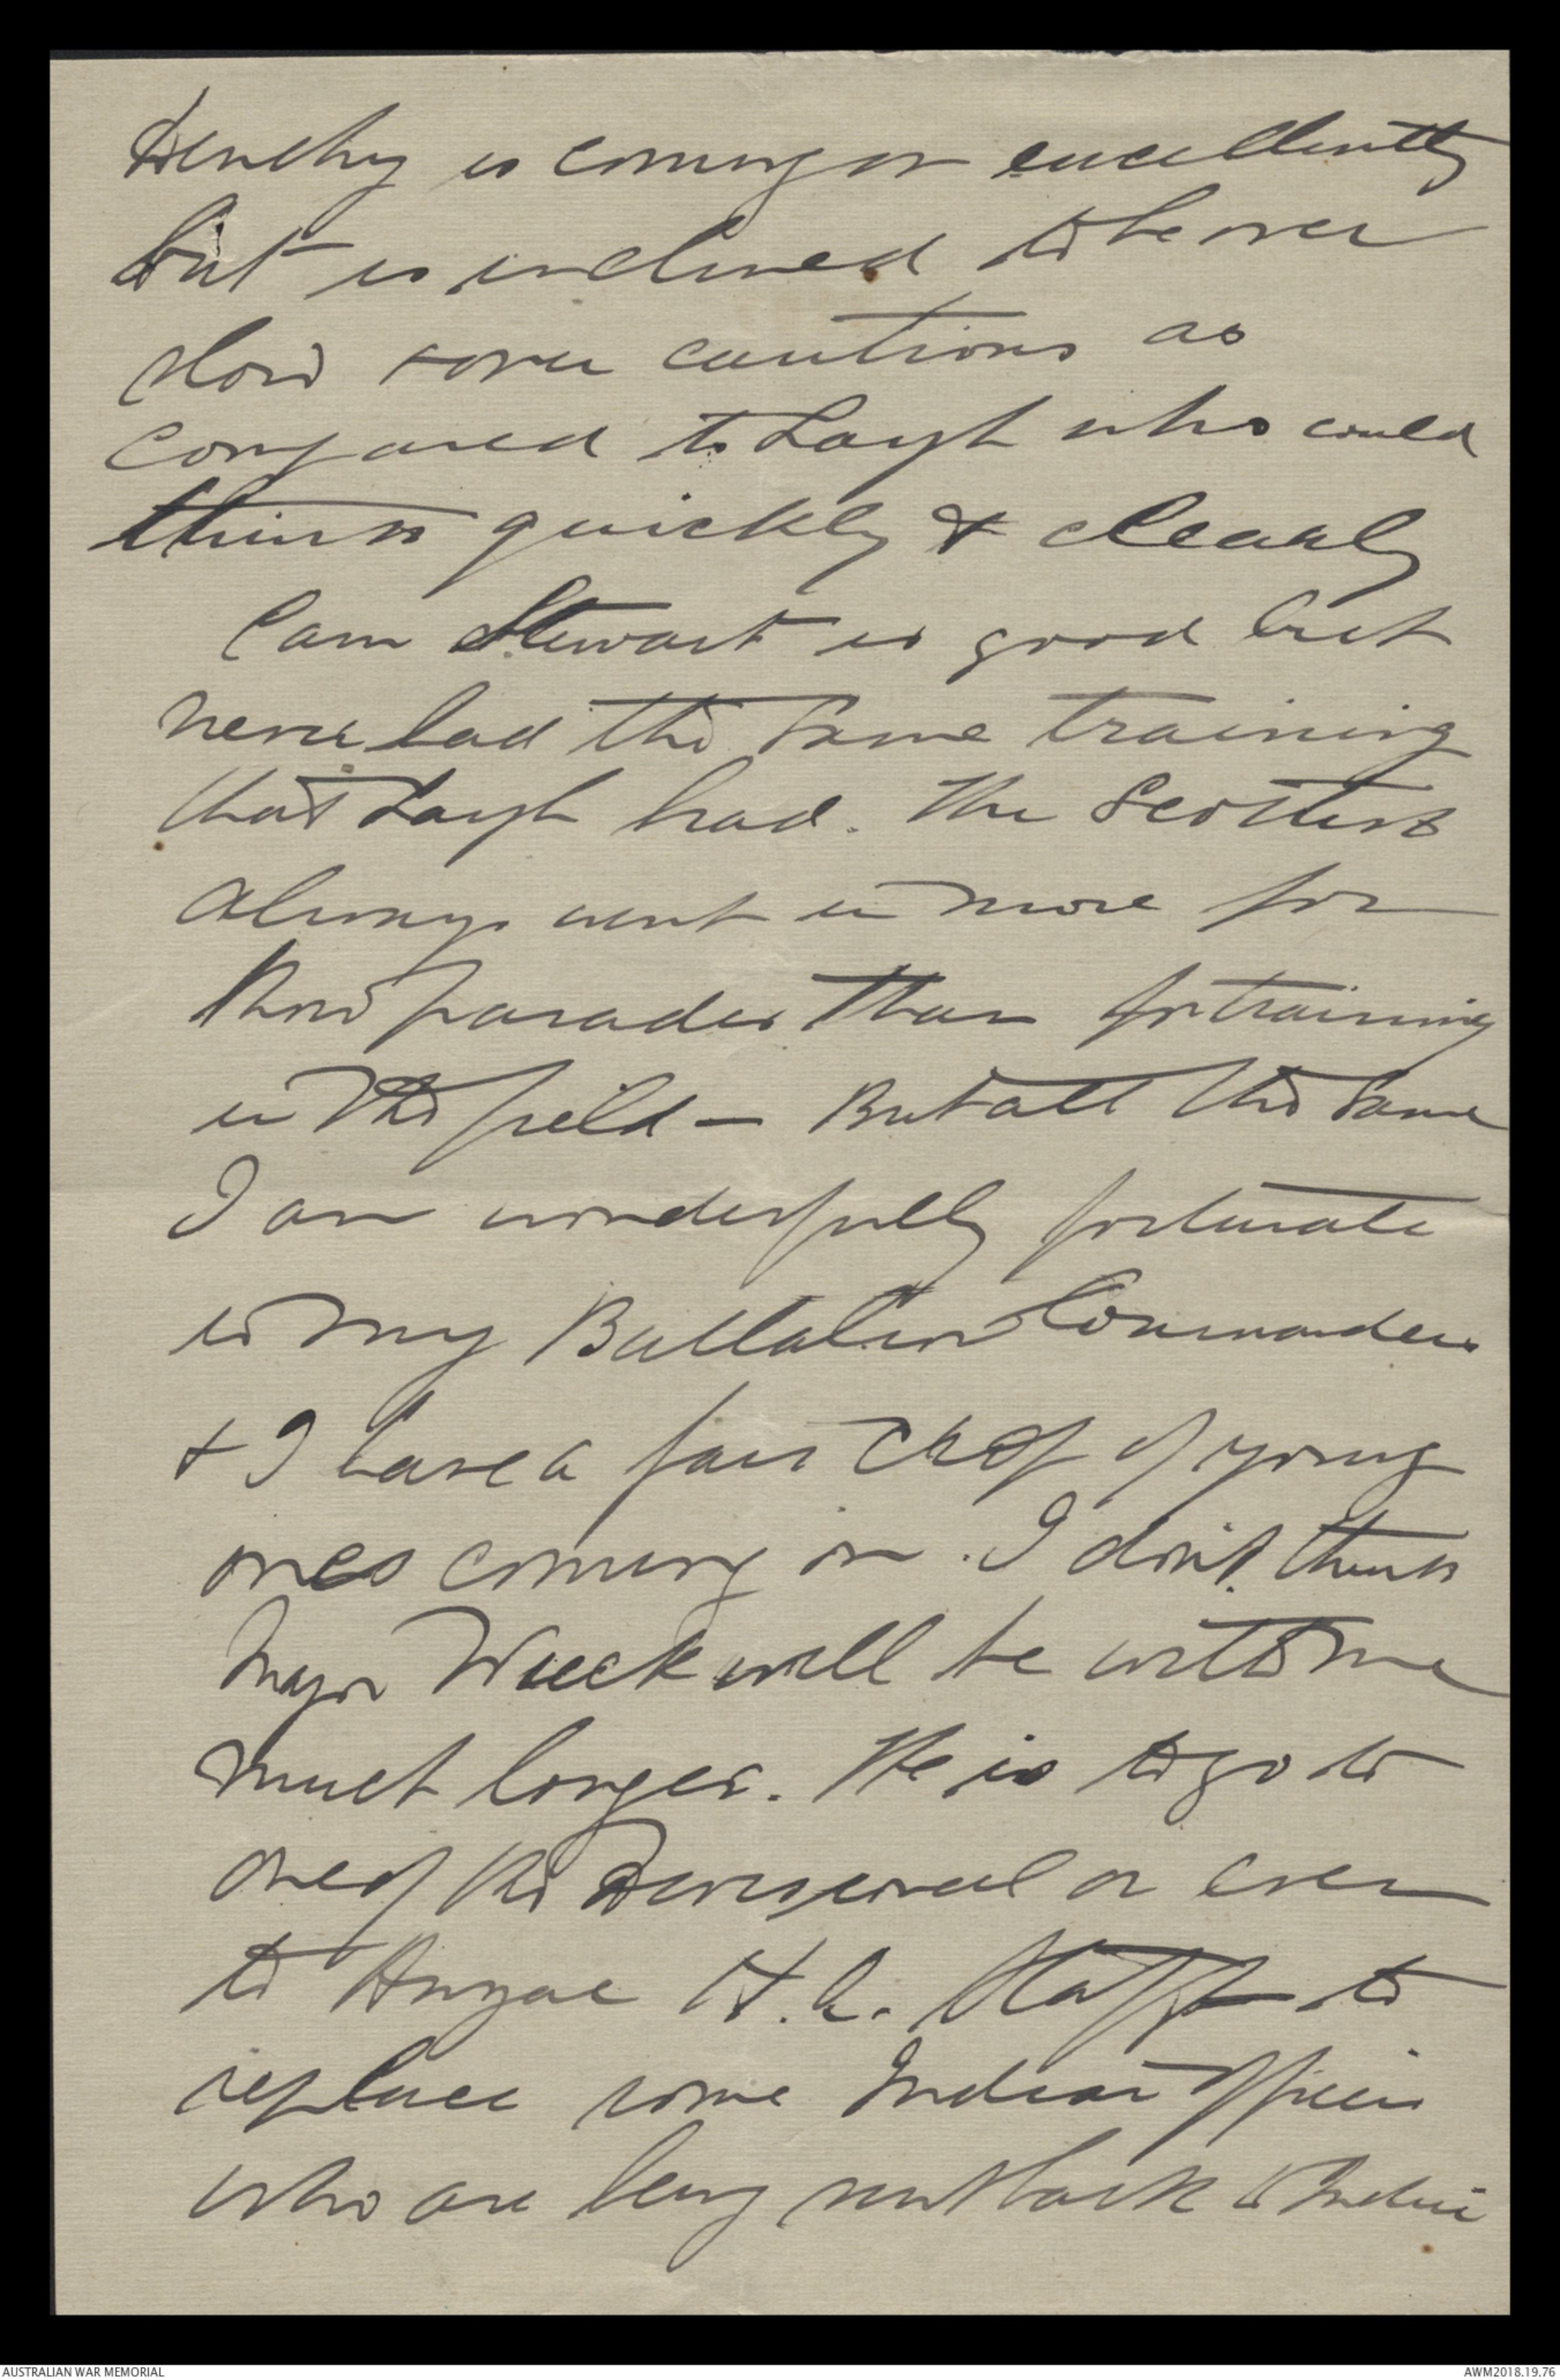 Denehy is coming on excellently
but is inclined to be over
slow & over cautious as
compared to Layh who could
think quickly & clearly
Cam Stewart is good but
never had the same training
that Layh had. The Scottish
always went in more for
Show parades than for training
in the field — But all the same
I am wonderfully fortunate
in my Battalion Commanders
& I have a fair crop of young
ones coming on. I don't think
Major Wieck will be with me
much longer. He is to go to
one of the Divisional or even
to Anzac H.Q. Staff to
replace some Indian Officers
who are being sent back to India
AUSTRALIAN WAR MEMORIAL
AWM2018.19.75